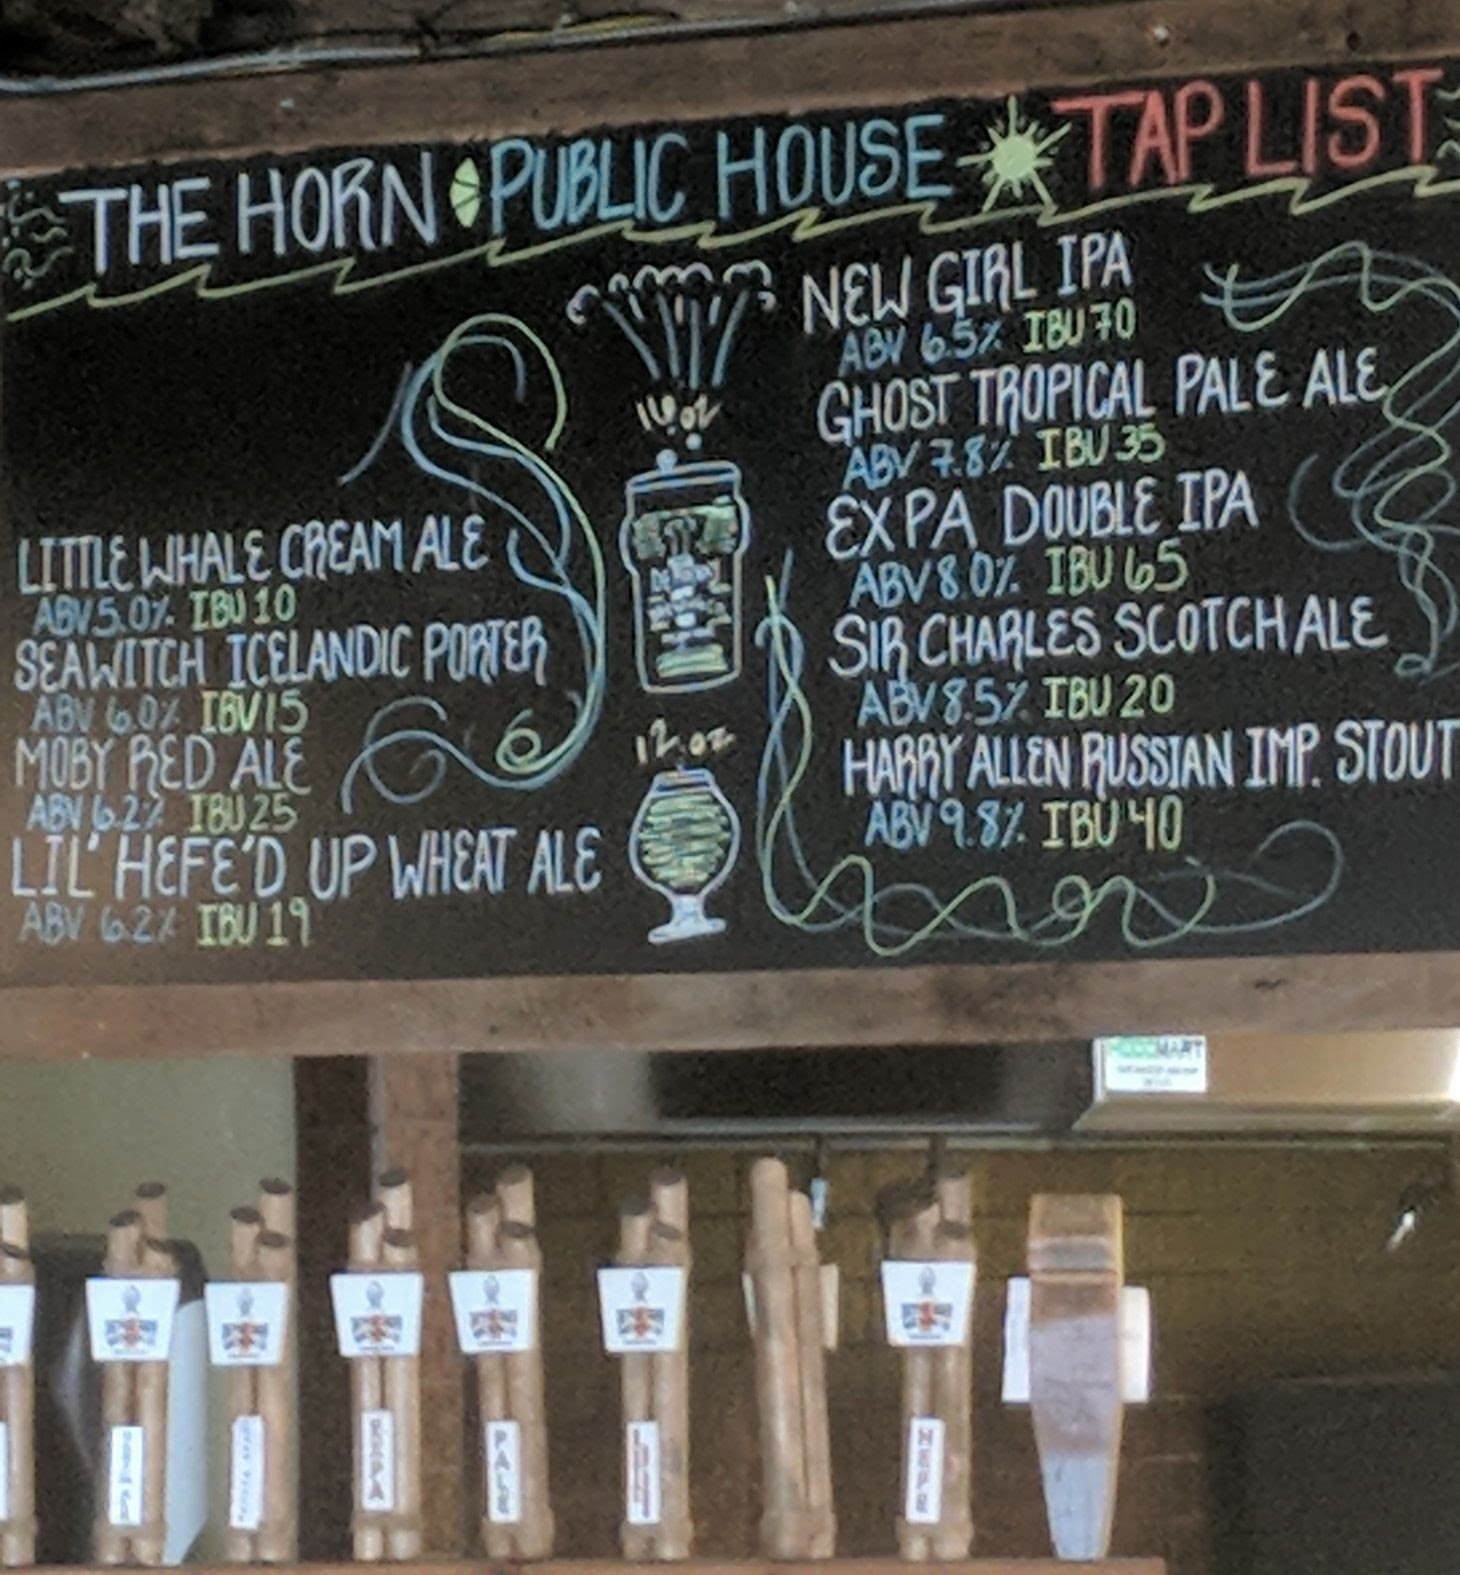 THE HORN PUBLIC HOUSE TAP LIST
LITTLE WHALE CREAM ALE
ABV 5.0% IBU 10
SEAWITCH ICELANDIC PORTER
ABV 6.0% IBU 15
MOBY RED ALE
ABV 6.2% IBU 25
LIL' HEFE'D UP WHEAT ALE
ABV 6.2% IBU 19
16 oz
12 oz
NEW GIRL IPA
ABV 6.5% IBU 70
GHOST TROPICAL PALE ALE
ABV 7.8% IBU 35
EXPA DOUBLE IPA
ABV 8.0% IBU 65
SIR CHARLES SCOTCH ALE
ABV 8.5% IBU 20
HARRY ALLEN RUSSIAN IMP. STOUT
ABV 9.8% IBU 40
PALE
HEFE